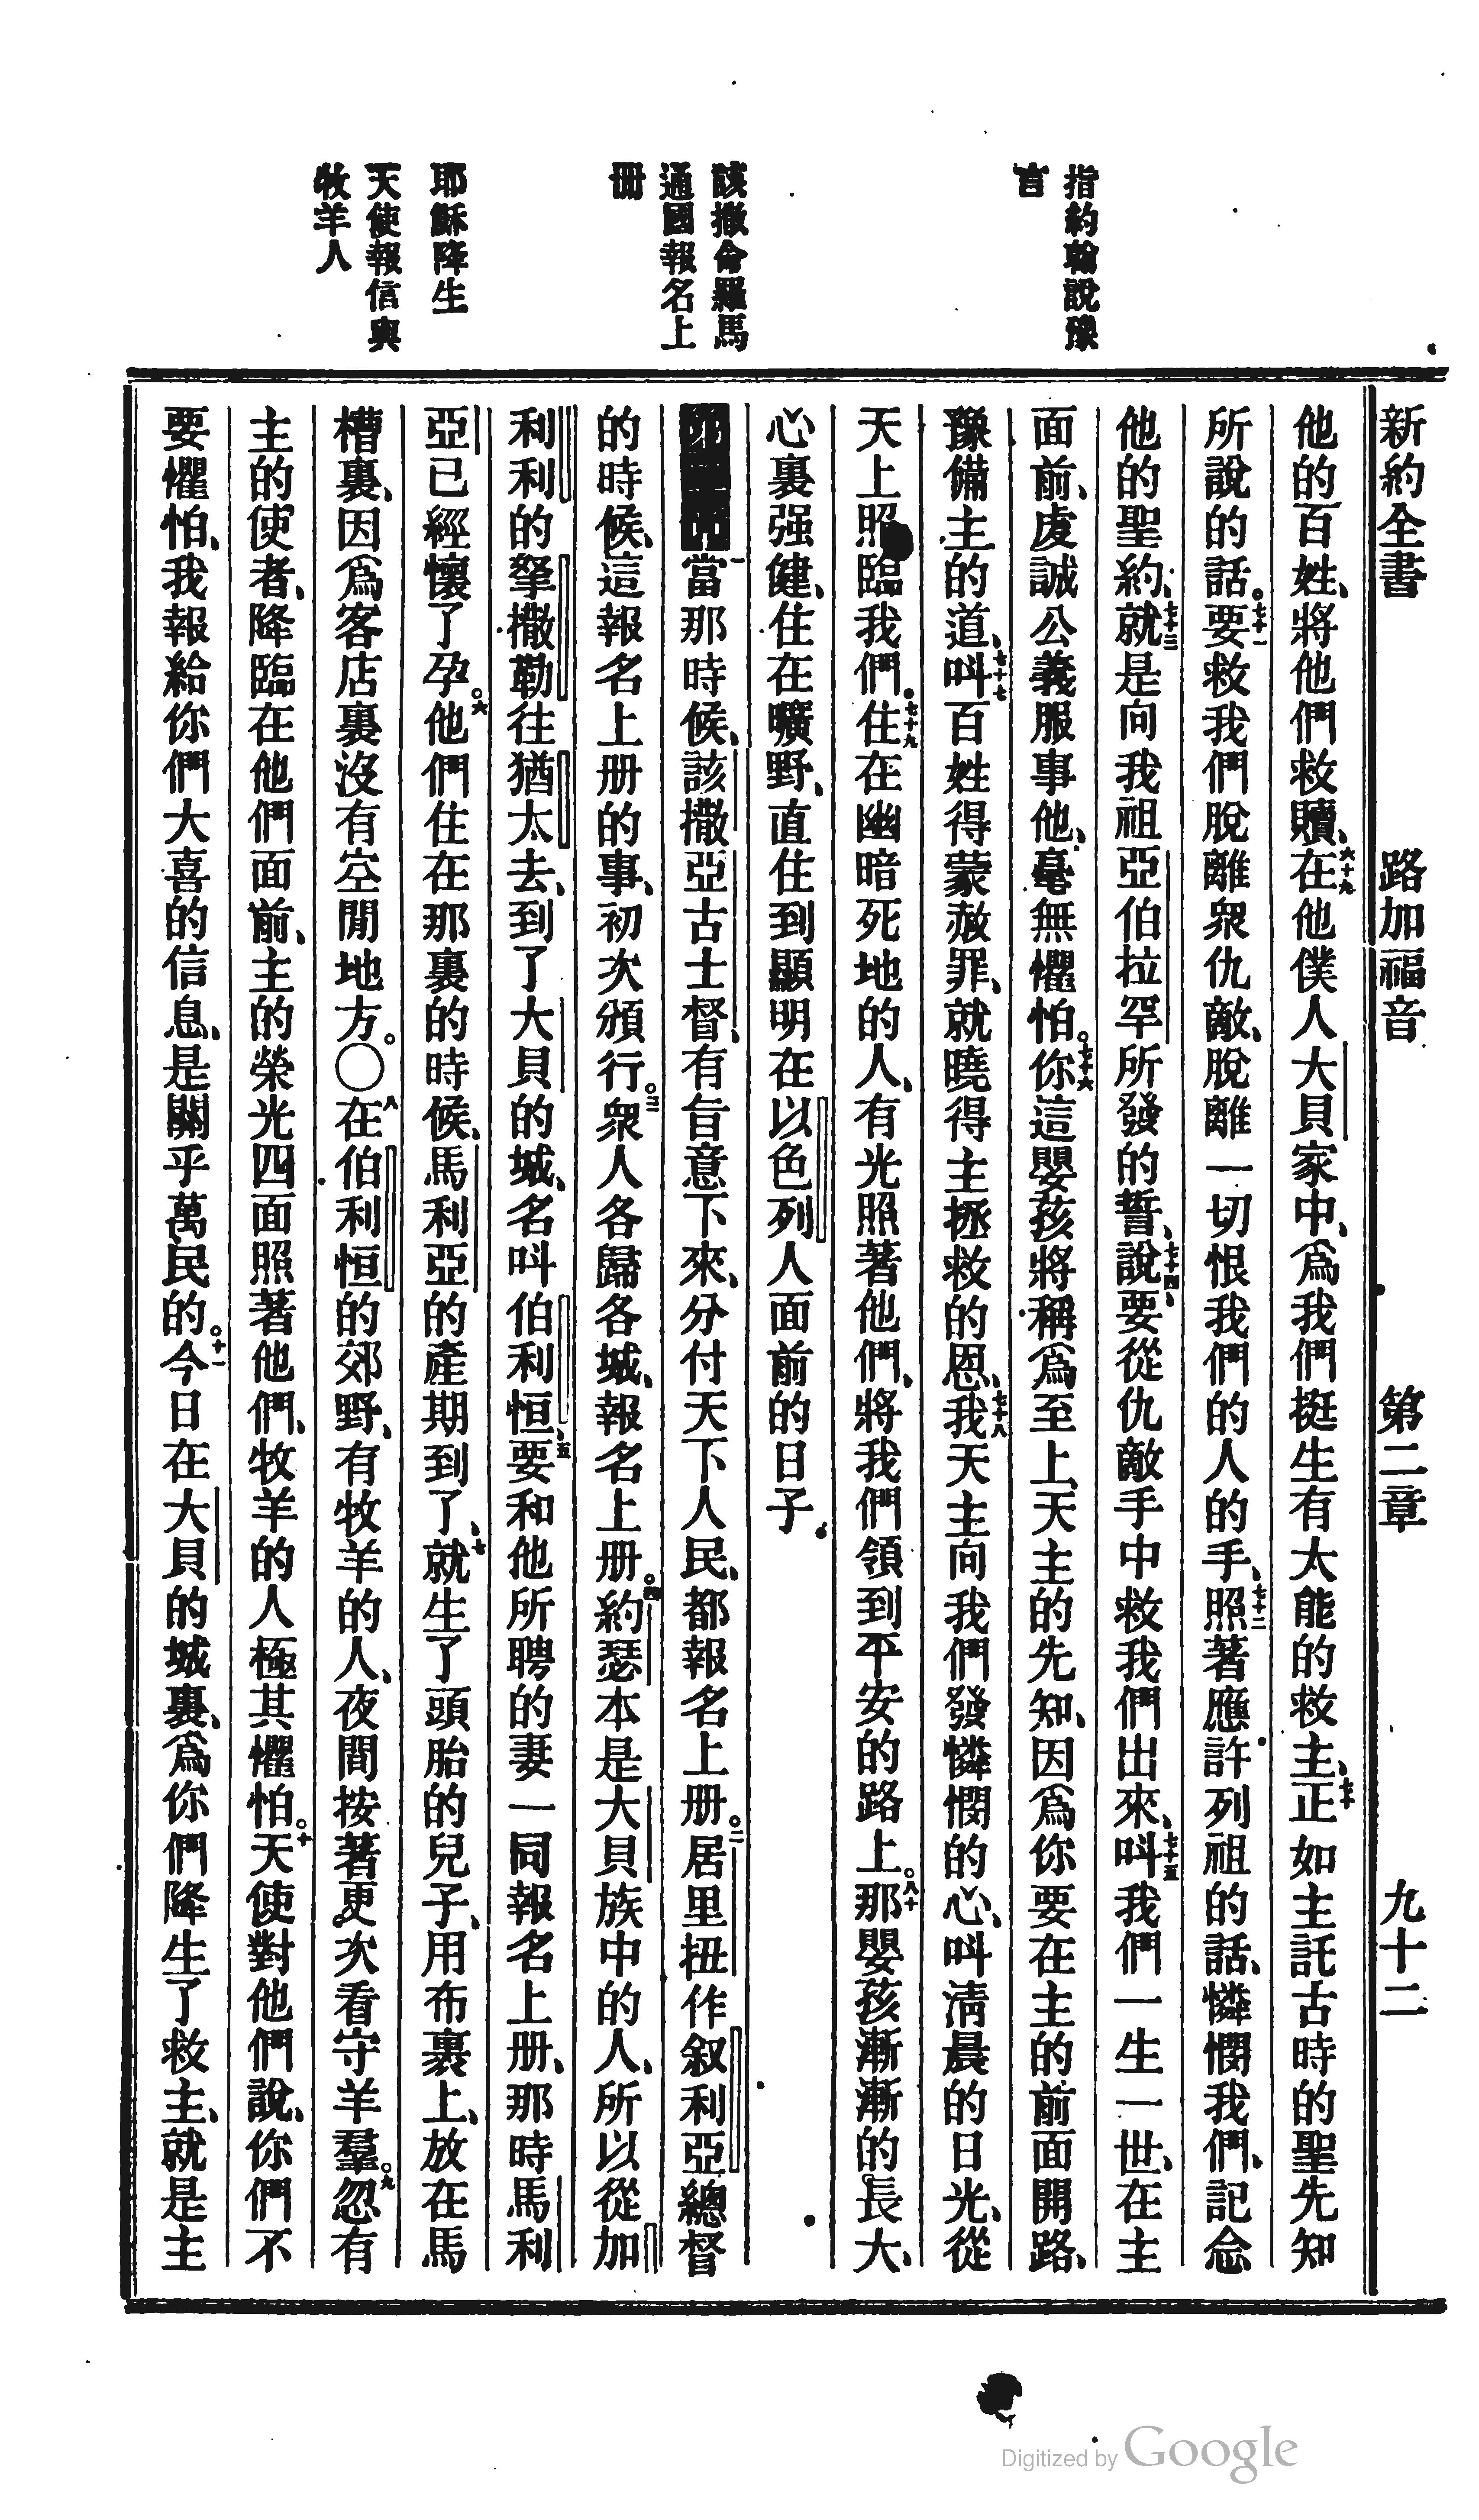 新約全書 路加福音 第二章 九十二
指約翰說豫
言
該撒命羅馬
通國報名上
冊
耶穌降生
天使報信與
牧羊人
他的百姓、將他們救贖、六十九在他僕人大貝家中、爲我們挺生有大能的救主、七十正如主託古時的聖先知
所說的話。七十一要救我們脫離衆仇敵、脫離一切恨我們的人的手、七十二照著應許列祖的話、憐憫我們、記念
他的聖約、七十三就是向我祖亞伯拉罕所發的誓、七十四說、要從仇敵手中救我們出來、七十五叫我們一生一世、在主
面前、虔誠公義服事他、毫無懼怕。七十六你這嬰孩將稱爲至上、天主的先知、因爲你要在主的前面開路、
豫備主的道、七十七叫百姓得蒙赦罪、就曉得主拯救的恩、七十八我天主向我們發憐憫的心、叫淸晨的日光、從
天上照臨我們。七十九住在幽暗死地的人、有光照著他們、將我們領到平安的路上。八十那嬰孩漸漸的長大、
心裏强健、住在曠野、直住到顯明在以色列人面前的日子
一當那時候、該撒亞古士督、有旨意下來、分付天下人民、都報名上册。二居里扭作叙利亞總督
的時候、這報名上册的事、初次頒行。三衆人各歸各城、報名上册。四約瑟本是大貝族中的人、所以從加
利利的拏撒勒往猶太去、到了大貝的城、名叫伯利恒、五要和他所聘的妻一同報名上册、那時馬利
亞已經懷了孕。六他們住在那裏的時候、馬利亞的產期到了、七就生了頭胎的兒子、用布裹上、放在馬
槽裏、因爲客店裏沒有空閒地方。〇八在伯利恒的郊野、有牧羊的人、夜間按著更次看守羊羣。九忽有
主的使者、降臨在他們面前、主的榮光四面照著他們、牧羊的人極其懼怕。十天使對他們說、你們不
要懼怕、我報給你們大喜的信息、是關乎萬民的。十一今日在大貝的城裏、爲你們降生了救主、就是主
Digitized by Google